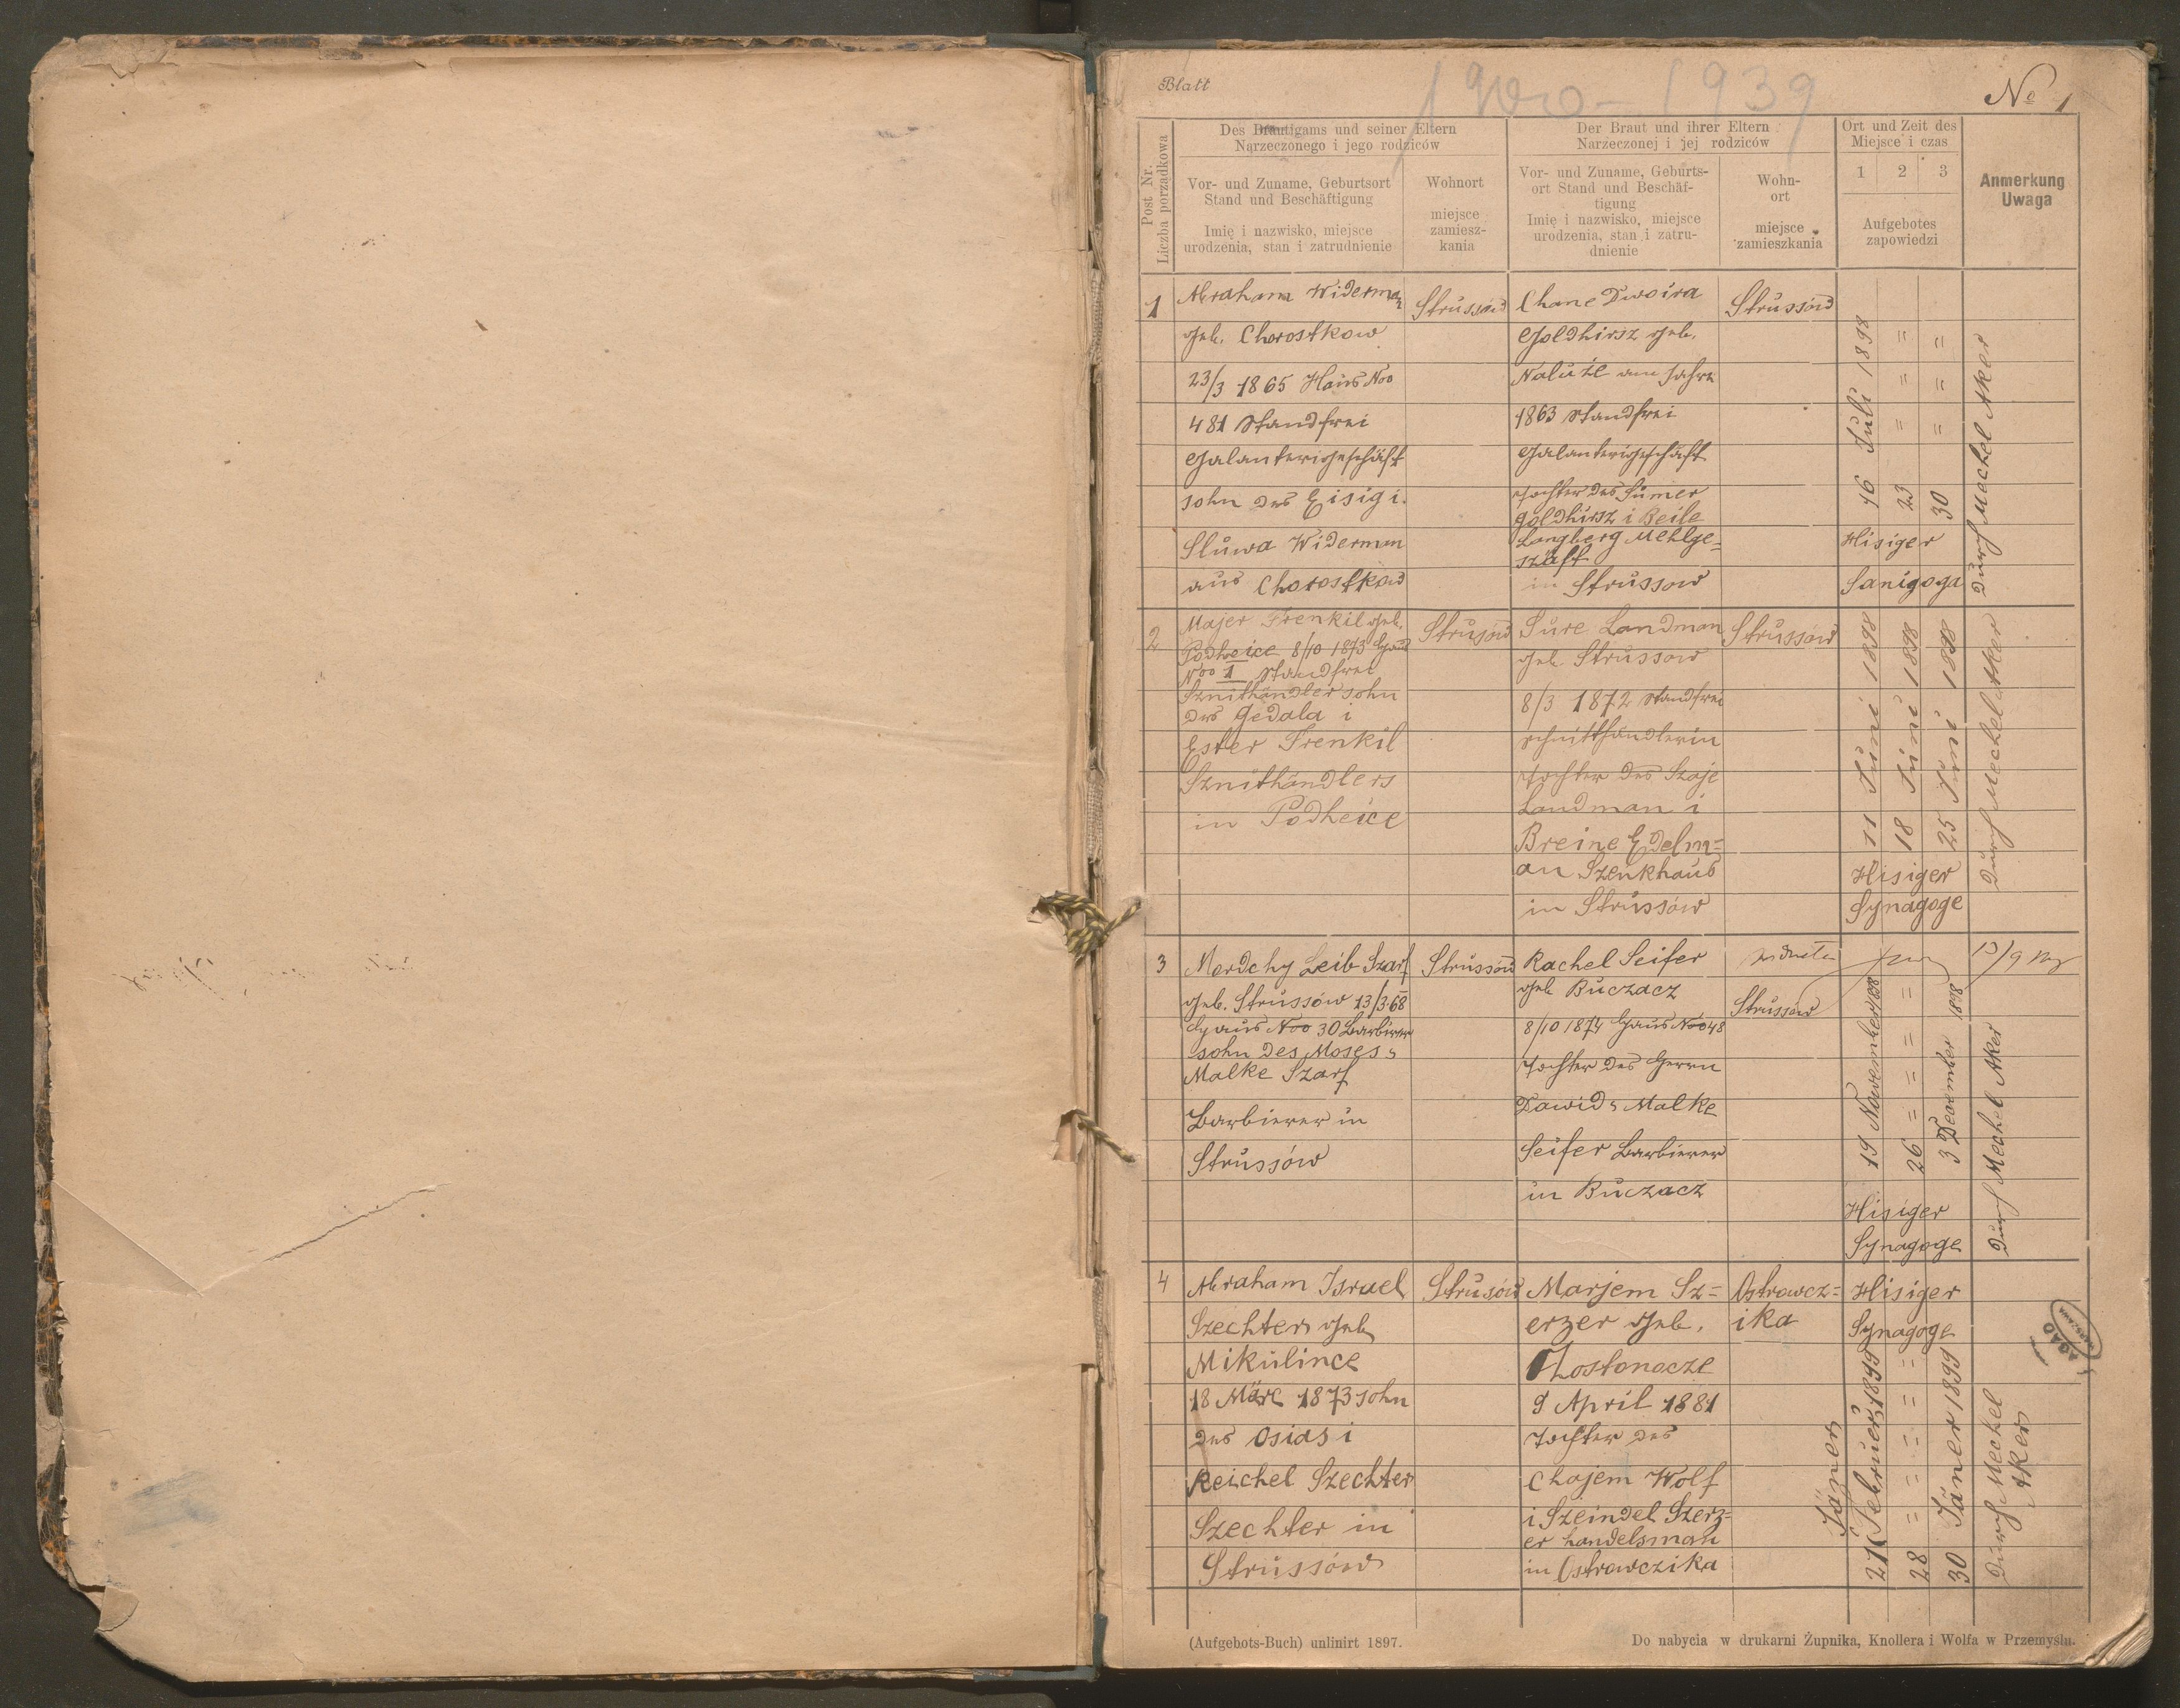 Blatt
1900-1939
№ 1
Post Nr.
Liczba porządkowa
Des Bräutigams und seiner Eltern
Narzeczonego i jego rodziców
Der Braut und ihrer Eltern
Narzeczonej i jej rodziców
Ort und Zeit des
Miejsce i czas
Vor- und Zuname, Geburtsort
Stand und Beschäftigung
Imię i nazwisko, miejsce
urodzenia, stan i zatrudnienie
Wohnort
miejsce
zamiesz-
kania
Vor- und Zuname, Geburts-
ort Stand und Beschäf-
tigung
Imię i nazwisko, miejsce
urodzenia, stan i zatru-
dnienie
Wohn-
ort
miejsce
zamieszkania
1 2 3
Aufgebotes
zapowiedzi
Anmerkung
Uwaga
1
Abraham Widerman
geb. Chorostkow
23/3 1865 Haus Noo
481 Standfrei
Galanterigeschäft
sohn des Eisig i.
Sluwa Widerman
aus Chorostkow
Strussów
Chane Dwoira
Goldhirsz geb.
Naluże am Jahre
1863 Standfrei
Galanterigeschäft
Tochter des Sumer
Goldhirsz i Beile
Langberg Mehlge=
szäft
in Strussow
Strussów
16 Juli 1898
23 " " "
30 " " "
Hisiger
Sanigoga
Durch Mechel Aker
2
Majer Frenkil geb.
Podheice 8/10 1873 Haus
Noo 1 Standfrei
Sznithändler sohn
des Gedala i
Ester Frenkil
Sznithändlers
in Podheice
Strusów
Sure Landman
geb. Strussow
8/3 1872 Standfrei
Schnitthändlerin
Tochter des Szaje
Landman i
Breine Edelm=
an Szenkhaus
in Strussów
Strussów
11 Juni 1898
18 Juni 1898
25 Juni 1898
Hisiger
Synagoge
Durch Mechel Aker
3
Mordchy Leib Szarf
geb. Strussów 13/3 68
Haus Noo 30 Barbirer
sohn des Moses u
Malke Szarf
Barbierer in
Strussów
Strussów
Rachel Seifer
geb Buczacz
8/10 1874 Haus Noo 48
Tochter des Herrn
Dawid u Malke
Seifer Barbierer
in Buczacz
Strussów
19 November 1898
26 = = = =
3 December 1898
Hisiger
Synagoge
13/9
Durch Mechel Aker
4
Abraham Israel
Szechter geb
Mikulince
18 Märc 1873 sohn
des Osias i
Reichel Szechter
Szechter in
Strussów
Strusów
Marjem Sz=
erzer geb.
Chostonocze
9 April 1881
Tochter des
Chajem Wolf
i Szeindel Szerz=
er handelsman
in Ostrowczika
Ostrowcz=
ika
Hisiger
Synagoge
Jäner
21 Februer 1899
28 = = = =
30 Jäner 1899
Durch Mechel
Aker
AGAD
WARSZAWA
(Aufgebots-Buch) unlinirt 1897.
Do nabycia w drukarni Żupnika, Knollera i Wolfa w Przemyślu.